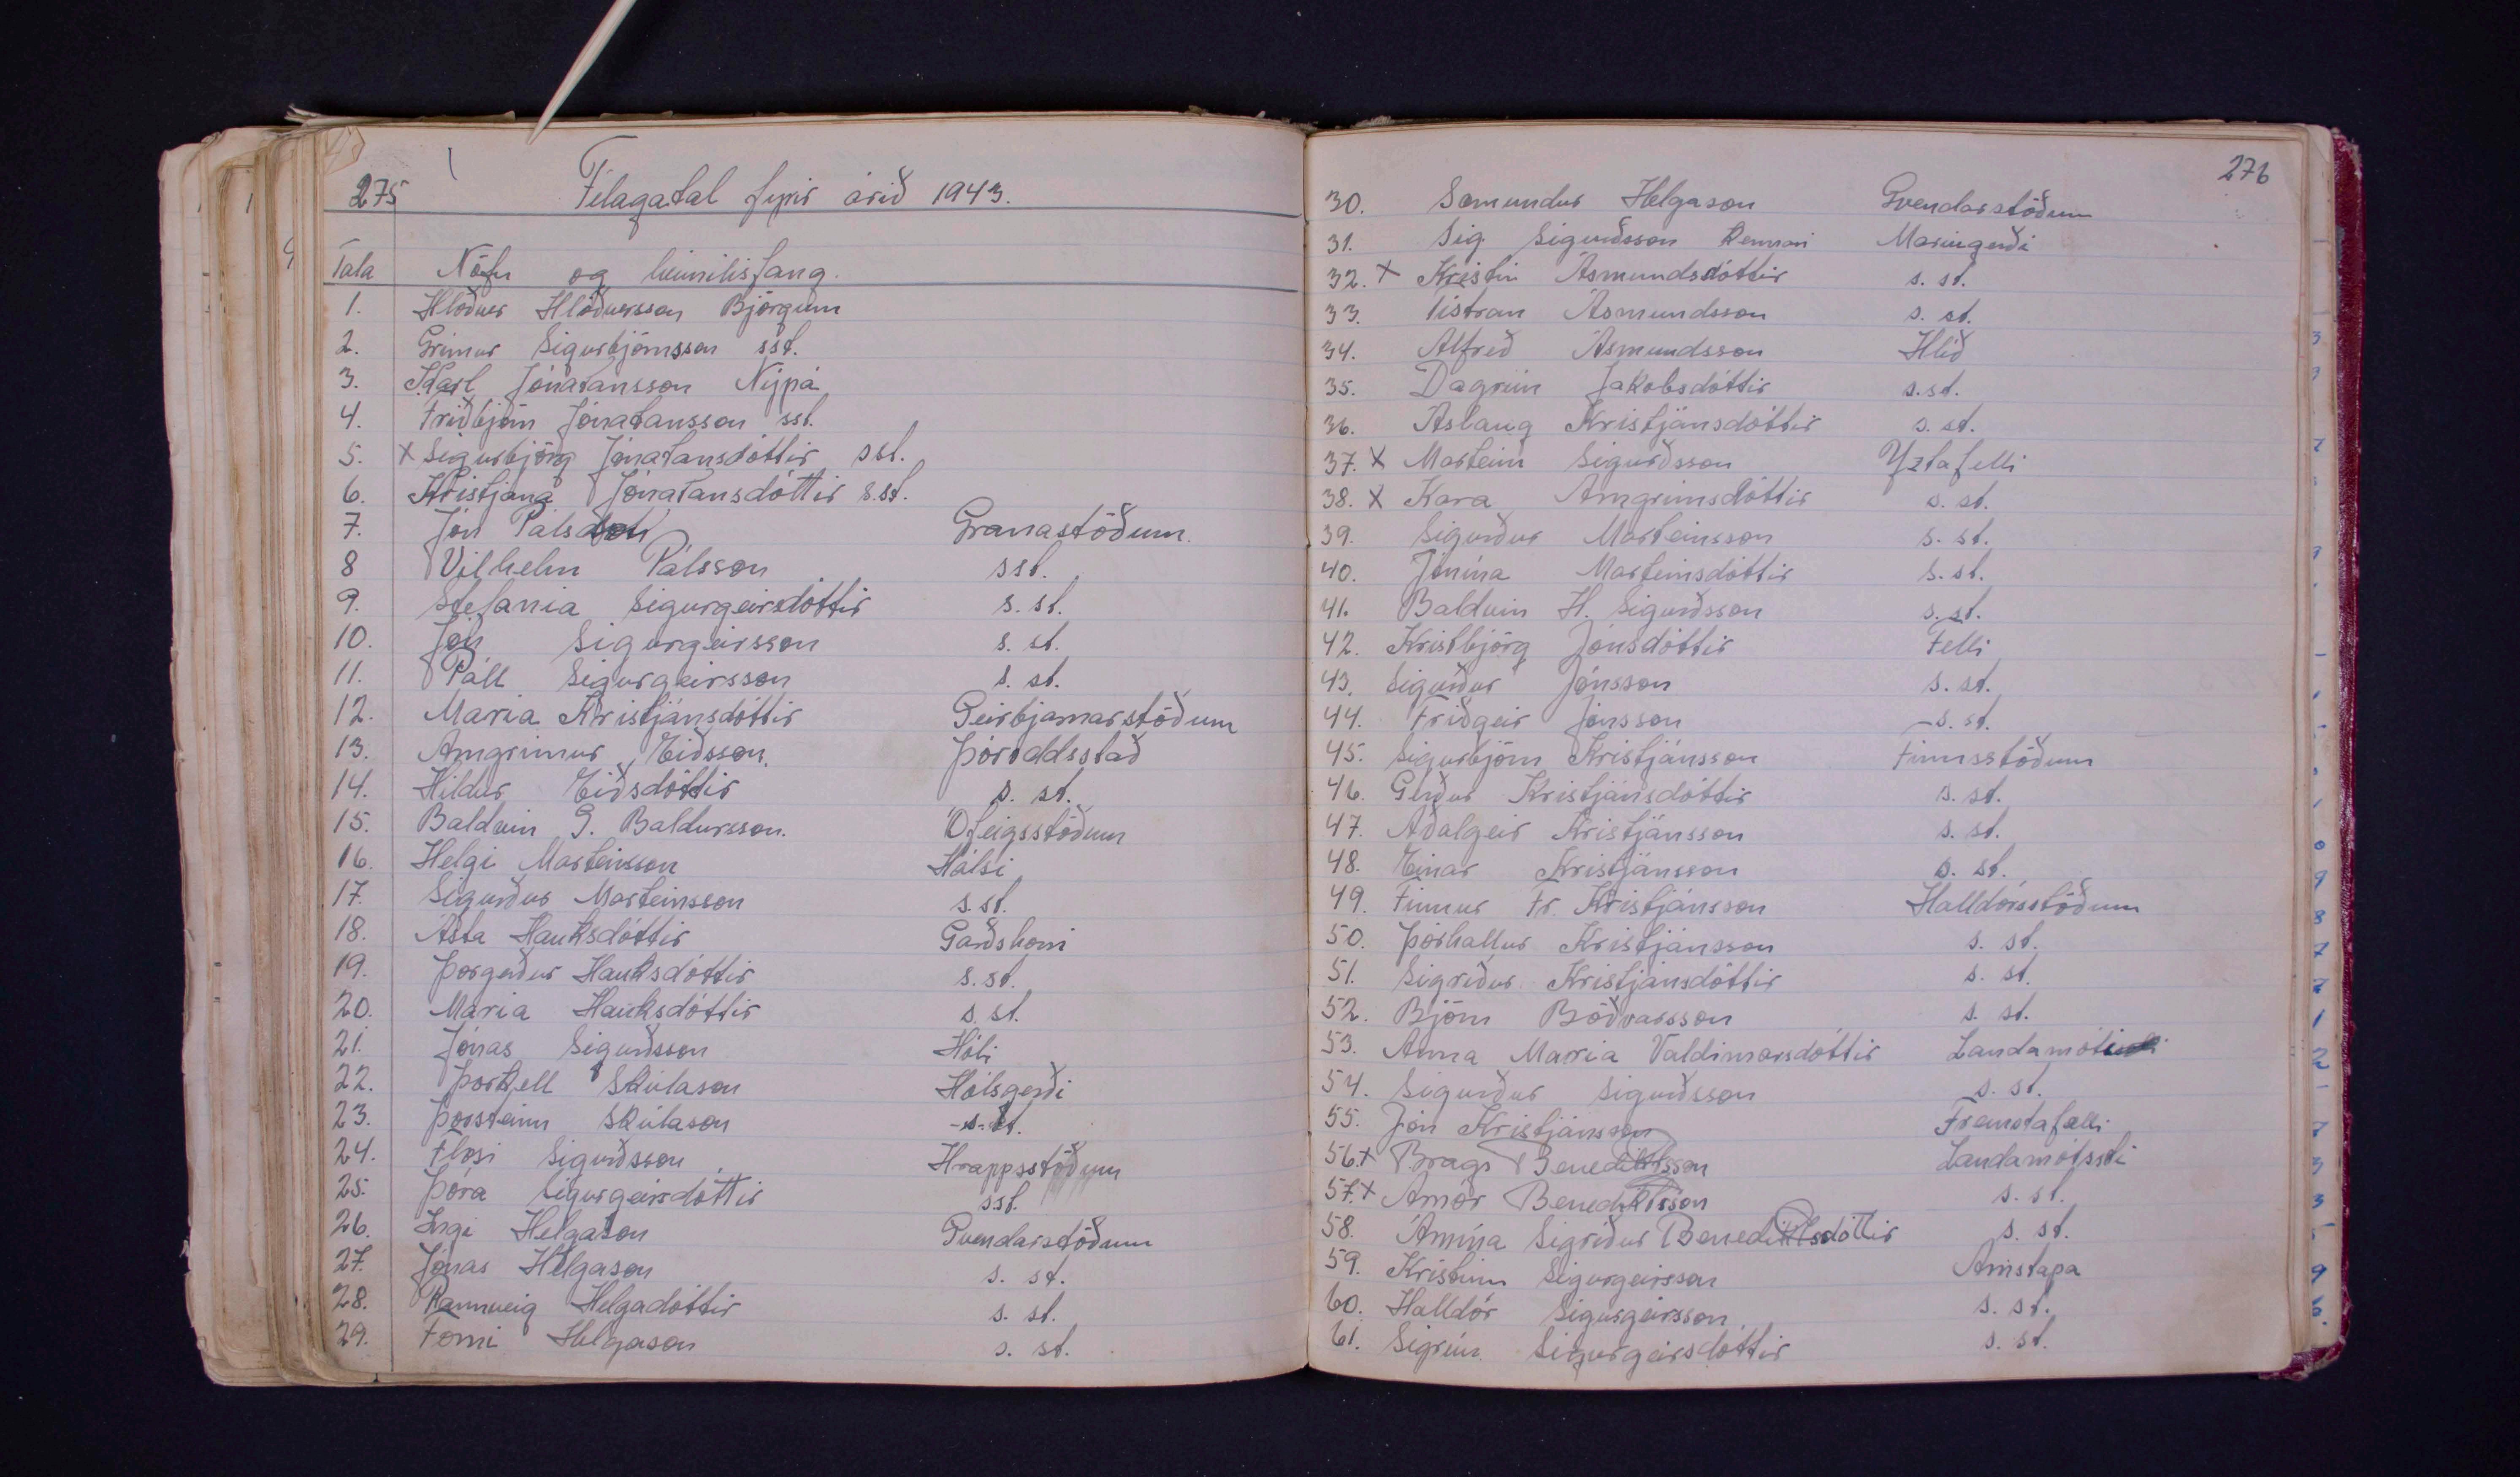 275 Félagatal fyrir árið 1943.
Tala Nöfn og heimilisfang.
1. Hlöðver Hlöðversson Björgum
2. Grímur Sigurbjörnsson sst.
3. Karl Jónatansson Nýpá
4. Friðbjörn Jónatansson sst.
5. x Sigurbjörg Jónatansdóttir sst.
6. Kristjana Jónatansdóttir s.st.
7. Jón Pálsson Granastöðum.
8 Vilhelm Pálsson sst.
9. Stefania Sigurgeirsdóttir s. st.
10. Jón Sigurgeirsson s. st.
11. Páll Sigurgeirsson s. st.
12. Maria Kristjánsdóttir Geirbjarnarstöðum
13. Arngrimur Eiðsson. Þóroddsstað
14. Hildur Eiðsdóttir s. st.
15. Baldvin G. Baldursson. Ófeigsstöðum
16. Helgi Marteinsson Hálsi
17. Sigurður Marteinsson s.st.
18. Ásta Hauksdóttir Garðshorni
19. Þorgerður Hauksdóttir s.st.
20. Maria Hauksdóttir s. st.
21. Jónas Sigurðsson Hóli
22. Þorkell Skúlason Hólsgerði
23. Þorsteinn Skúlason -s. st.
24. Flosi Sigurðsson Hrappsstöðum
25. Þóra Sigurgeirsdóttir sst.
26. Ingi Helgason Gvendarstöðum
27. Jónas Helgason s. st.
28. Rannveig Helgadóttir s. st.
29. Forni Helgason s. st.
276
30. Sæmundur Helgason Gvendarstöðum
31. Sig. Sigurðsson kennari Maríugerði
32. x Kristín Ásmundsdóttir s. st.
33. Tistran Ásmundsson s. st.
34. Alfreð Ásmundsson Hlíð
35. Dagrún Jakobsdóttir s.st.
36. Áslaug Kristjánsdóttir s. st.
37. x Marteinn Sigurðsson Yztafelli
38. x Kara Arngrimsdóttir s. st.
39. Sigurður Marteinsson s. st.
40. Jónína Marteinsdóttir s. st.
41. Baldvin H. Sigurðsson s. st.
42. Kristbjörg Jónsdóttir Felli
43. Sigurður Jónsson s. st.
44. Friðgeir Jónsson -s. st.
45. Sigurbjörn Kristjánsson Finnsstöðum
46. Gerður Kristjánsdóttir s. st.
47. Aðalgeir Kristjánsson s. st.
48. Einar Kristjánsson s. st.
49. Finnur Fr. Kristjánsson Halldórsstöðum
50. Þórhallur Kristjánsson s. st.
51. Sigríður Kristjánsdóttir s. st.
52. Björn Böðvarsson s. st.
53. Anna Maria Valdimarsdóttir Landamóti
54. Sigurður Sigurðsson s. st.
55. Jón Kristjánsson Fremstafelli
56. x Bragi Benediktsson Landamótsseli
57. x Arnór Benediktsson s. st.
58. Árnína Sigríður Benediktsdóttir s. st.
59. Kristinn Sigurgeirsson Arnstapa
60. Halldór Sigurgeirsson s. st.
61. Sigrún Sigurgeirsdóttir s. st.